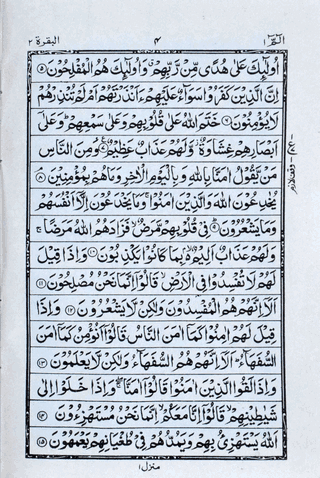 الٓمّٓ ١ ٤ البقرة ٢
اُولٰٓئِكَ عَلٰى هُدًى مِّنْ رَّبِّهِمْ وَاُولٰٓئِكَ هُمُ الْمُفْلِحُوْنَ ﴿٥﴾
اِنَّ الَّذِيْنَ كَفَرُوْا سَوَآءٌ عَلَيْهِمْ ءَاَنْذَرْتَهُمْ اَمْ لَمْ تُنْذِرْهُمْ
لَا يُؤْمِنُوْنَ ﴿٦﴾ خَتَمَ اللّٰهُ عَلٰى قُلُوْبِهِمْ وَعَلٰى سَمْعِهِمْ ؕ وَعَلٰٓى
اَبْصَارِهِمْ غِشَاوَةٌ ؗ وَّلَهُمْ عَذَابٌ عَظِيْمٌ ﴿٧﴾ وَمِنَ النَّاسِ
مَنْ يَّقُوْلُ اٰمَنَّا بِاللّٰهِ وَبِالْيَوْمِ الْاٰخِرِ وَمَا هُمْ بِمُؤْمِنِيْنَ ﴿٨﴾
يُخٰدِعُوْنَ اللّٰهَ وَالَّذِيْنَ اٰمَنُوْا ۚ وَمَا يَخْدَعُوْنَ اِلَّآ اَنْفُسَهُمْ
وَمَا يَشْعُرُوْنَ ﴿٩﴾ فِيْ قُلُوْبِهِمْ مَّرَضٌ ۙ فَزَادَهُمُ اللّٰهُ مَرَضًا ۚ
وَلَهُمْ عَذَابٌ اَلِيْمٌ ۢ ۙ بِمَا كَانُوْا يَكْذِبُوْنَ ﴿١٠﴾ وَاِذَا قِيْلَ
لَهُمْ لَا تُفْسِدُوْا فِي الْاَرْضِ ۙ قَالُوْٓا اِنَّمَا نَحْنُ مُصْلِحُوْنَ ﴿١١﴾
اَلَآ اِنَّهُمْ هُمُ الْمُفْسِدُوْنَ وَلٰكِنْ لَّا يَشْعُرُوْنَ ﴿١٢﴾ وَاِذَا
قِيْلَ لَهُمْ اٰمِنُوْا كَمَآ اٰمَنَ النَّاسُ قَالُوْٓا اَنُؤْمِنُ كَمَآ اٰمَنَ
السُّفَهَآءُ ؕ اَلَآ اِنَّهُمْ هُمُ السُّفَهَآءُ وَلٰكِنْ لَّا يَعْلَمُوْنَ ﴿١٣﴾
وَاِذَا لَقُوا الَّذِيْنَ اٰمَنُوْا قَالُوْٓا اٰمَنَّا ۖۚ وَاِذَا خَلَوْا اِلٰى
شَيٰطِيْنِهِمْ ۙ قَالُوْٓا اِنَّا مَعَكُمْ ۙ اِنَّمَا نَحْنُ مُسْتَهْزِءُوْنَ ﴿١٤﴾
اَللّٰهُ يَسْتَهْزِئُ بِهِمْ وَيَمُدُّهُمْ فِيْ طُغْيَانِهِمْ يَعْمَهُوْنَ ﴿١٥﴾
منزل ١